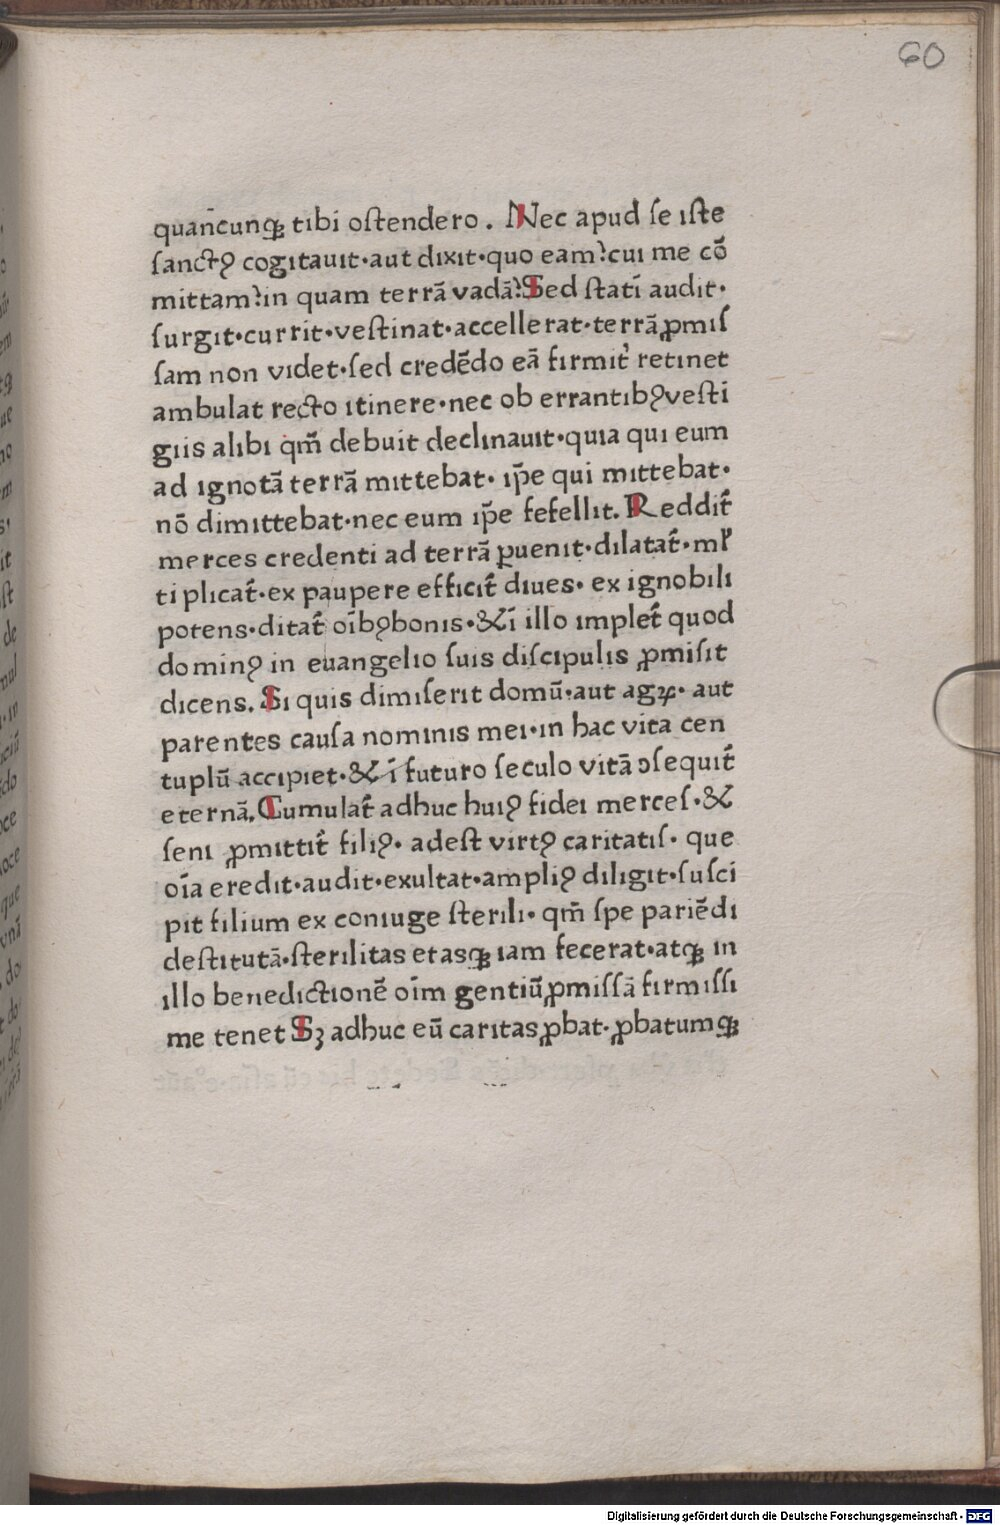 60
quan̄cunqꝫ tibi oſtendero . Nec apud ſe ıſte
ſanctꝯ cogitauıt·aut dıxıt·quo eam?cuı me cō
mittam?in quam terrā vadā?Sed ſtatı̄ audit·
ſurgıt·currit·veſtinat·accellerat·terrā ꝓmiſ
ſam non vıdet·ſed credēdo eā fırmıt͛ retınet
ambulat recto ıtinere·nec ob errantıbꝯ veſti
giis alıbi qm̄ debuit declınauıt·quıa qui eum
ad ıgnotā terrā mıttebat· ıp̄e qui mıttebat·
nō dimıttebat·nec eum ıp̄e fefellıt. Reddıt᷑
merces credenti ad terrā ꝑuenıt·dılatat᷑·ml᷑
ti plicat᷑·ex paupere effıcıt᷑ dıues· ex ıgnobılı
potens·dıtat᷑ oı̄bꝯ bonıs·&ı̄ illo ımplet᷑ quod
domınꝯ in euangelıo ſuıs dıſcıpulıs ꝓmıſıt
dıcens. Sı quıs dımıſerıt domū·aut agꝝ· aut
parentes cauſa nomınıs meı·ın hac vıta cen
tuplū accıpıet·& ı̄ futuro ſeculo vıtā ↄſequıt᷑
eternā. Cumulat᷑ adhuc huıꝯ fıdeı merceſ·&
ſenı ꝓmıttıt᷑ fılıꝯ· adeſt vırtꝯ carıtatıſ· que
oı̄a eredıt·audıt·exultat·amplıꝯ dılıgıt·ſuſcı
pıt fılıum ex conıuge ſterılı· qm̄ ſpe parıēdı
deſtıtutā·ſterılıtas etasqꝫ ıam fecerat·atqꝫ ın
ıllo benedıctıonē oı̄m gentıū ꝓmıſſā fırmıſſı
me tenet Sꝫ adhuc eū carıtas ꝓbat· ꝓbatumqꝫ
Digitalisierung gefördert durch die Deutsche Forschungsgemeinschaft - DFG